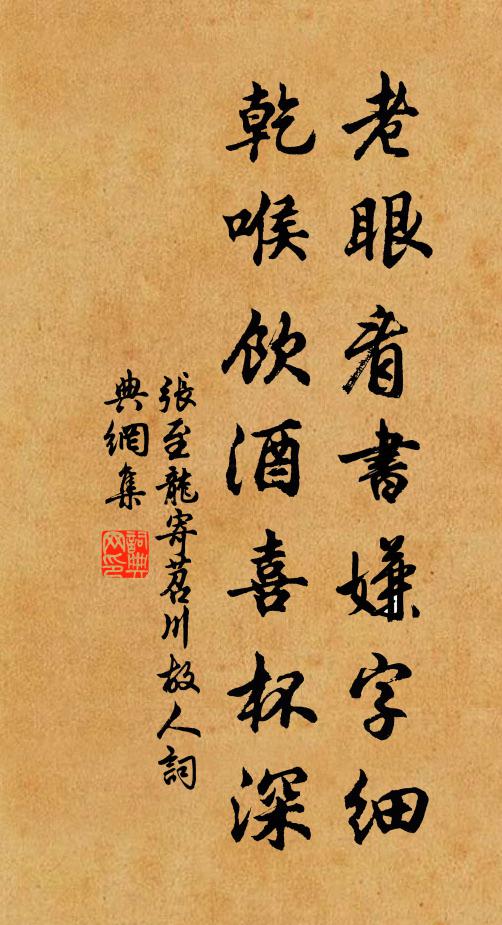 老眼看書嫌字細
乾喉飲酒喜杯深
張至龍寄苕川故人詞
典網集
詞典网印